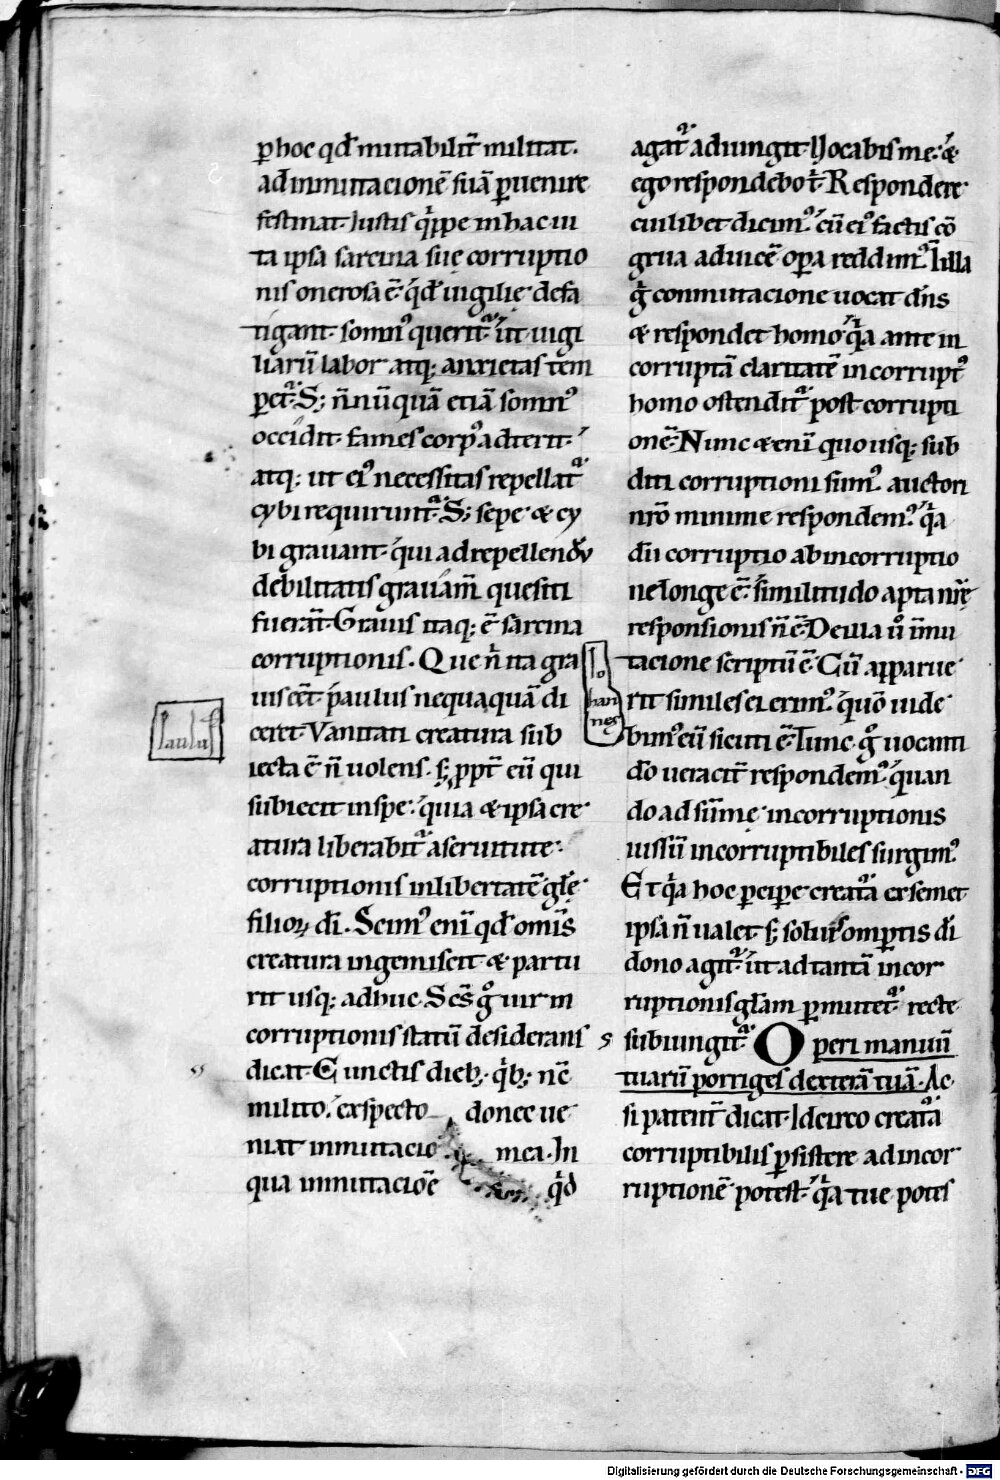 ꝑ hoc qđ mutabilit̄ militat.
ad inmutacionē suā ꝑuenire
festinat. Iustis q̍ppe in hac ui
ta ipsa sarcina suę corruptio
nis onerosa ē. q̍d uigilię defa
tigant. somn᷒ querit᷑. ut uigi
liarū labor atq; anxietas tem
ꝑet᷑. S; n̄nūquā etiā somn᷒
occidit. fames corp᷒ adterit.
atq; ut ei᷒ necessitas repellat᷑
cybi requirunt᷑. S; sepe & cy
bi grauant. qui ad repellendū
debilitatis grauam̄ quesiti
fuerāt. Grauis itaq; ē sarcina
corruptionis. Que n̄ ita gra
uis eēt. paulus nequaquā di
ceret. Vanitati creatura sub
iecta ē n̄ uolens. s; ꝓpt̄ eū qui
subiecit in spe. quia & ipsa cre
atura liberabit᷑ a seruitute
corruptionis in libertatē glę
filioꝝ di. Scim᷒ eni qđ omīs
creatura ingemiscit & partu
rit usq; adhuc. Scs̄ g̊ uir in
corruptionis statū desiderans
dicat. Cunctis dieb; q̍b; nc̄
milito. exspecto donec ue
niat inmutacio mea. In
qua inmutaciōe q̍d
paulus
agat᷑ adiungit. Uocabis me. &
ego respondebo t̍. Respondere
cuilibet dicim᷒. cū ei᷒ factis cō
grua aduicē oꝑa reddim᷒. In illa
g̊ conmutacione uocat dn̄s
& respondet homo. q̍a ante in
corruptā claritatē incorrupt᷒
homo ostendit᷑ post corrupti
onē. Nunc & enī quousq; sub
diti corruptioni sum᷒. auctori
nr̄o minime respondem᷒. q̍a
dū corruptio ab incorruptio
ne longe ē. similitudo apta nr̄ę
responsionis n̄ ē. De illa ū inmu
tacione scriptū ē. Cū apparue
rit similes ei erim᷒. quō uide
bim᷒ eū sicuti ē. Tunc g̊ uocanti
dō ueracit̄ respondem᷒. quan
do ad sum̄ę incorruptionis
iussū incorruptibiles surgim᷒.
Et q̍a hoc ꝑciꝑe creat᷑a ex semet
ipsa n̄ ualet s; solui᷒ omptis di
dono agit᷑. ut ad tantā incor
ruptionis gl̄am ꝑmutet᷑. recte
subiungit᷑. Operi manuū
tuarū porriges dexterā tuā. Ac
si patent̄ dicat. Idcirco creat᷑a
corruptibilis ꝑsistere ad incor
ruptionē potest. q̍a tue potes
Io
han
nes
Digitalisierung gefördert durch die Deutsche Forschungsgemeinschaft - DFG